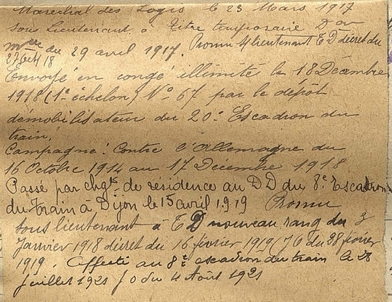 Maréchal des Logis le 23 Mars 1917
Sous Lieutenant à titre temporaire D on
Melle du 29 avril 1917. Promu S/lieutenant TD décret du
Envoyé en congé illimité le 18 Décembre
1918 (1e échelon) No 67 par le dépôt
démobilisateur du 20e Escadron du
train,
Campagne: Contre l'Allemagne du
16 Octobre 1914 au 17 Décembre 1918
Passé par chgt de résidence au DD du 8e Escadron
du Train à Dijon le 15 avril 1919 Promu
sous lieutenant à TD nouveau rang du 3
Janvier 1918 décret du 16 février 1919 (JO du 28 février
1919. Affecté au 8e escadron du train le 28
juillet 1921 JO du 4 Août 1921